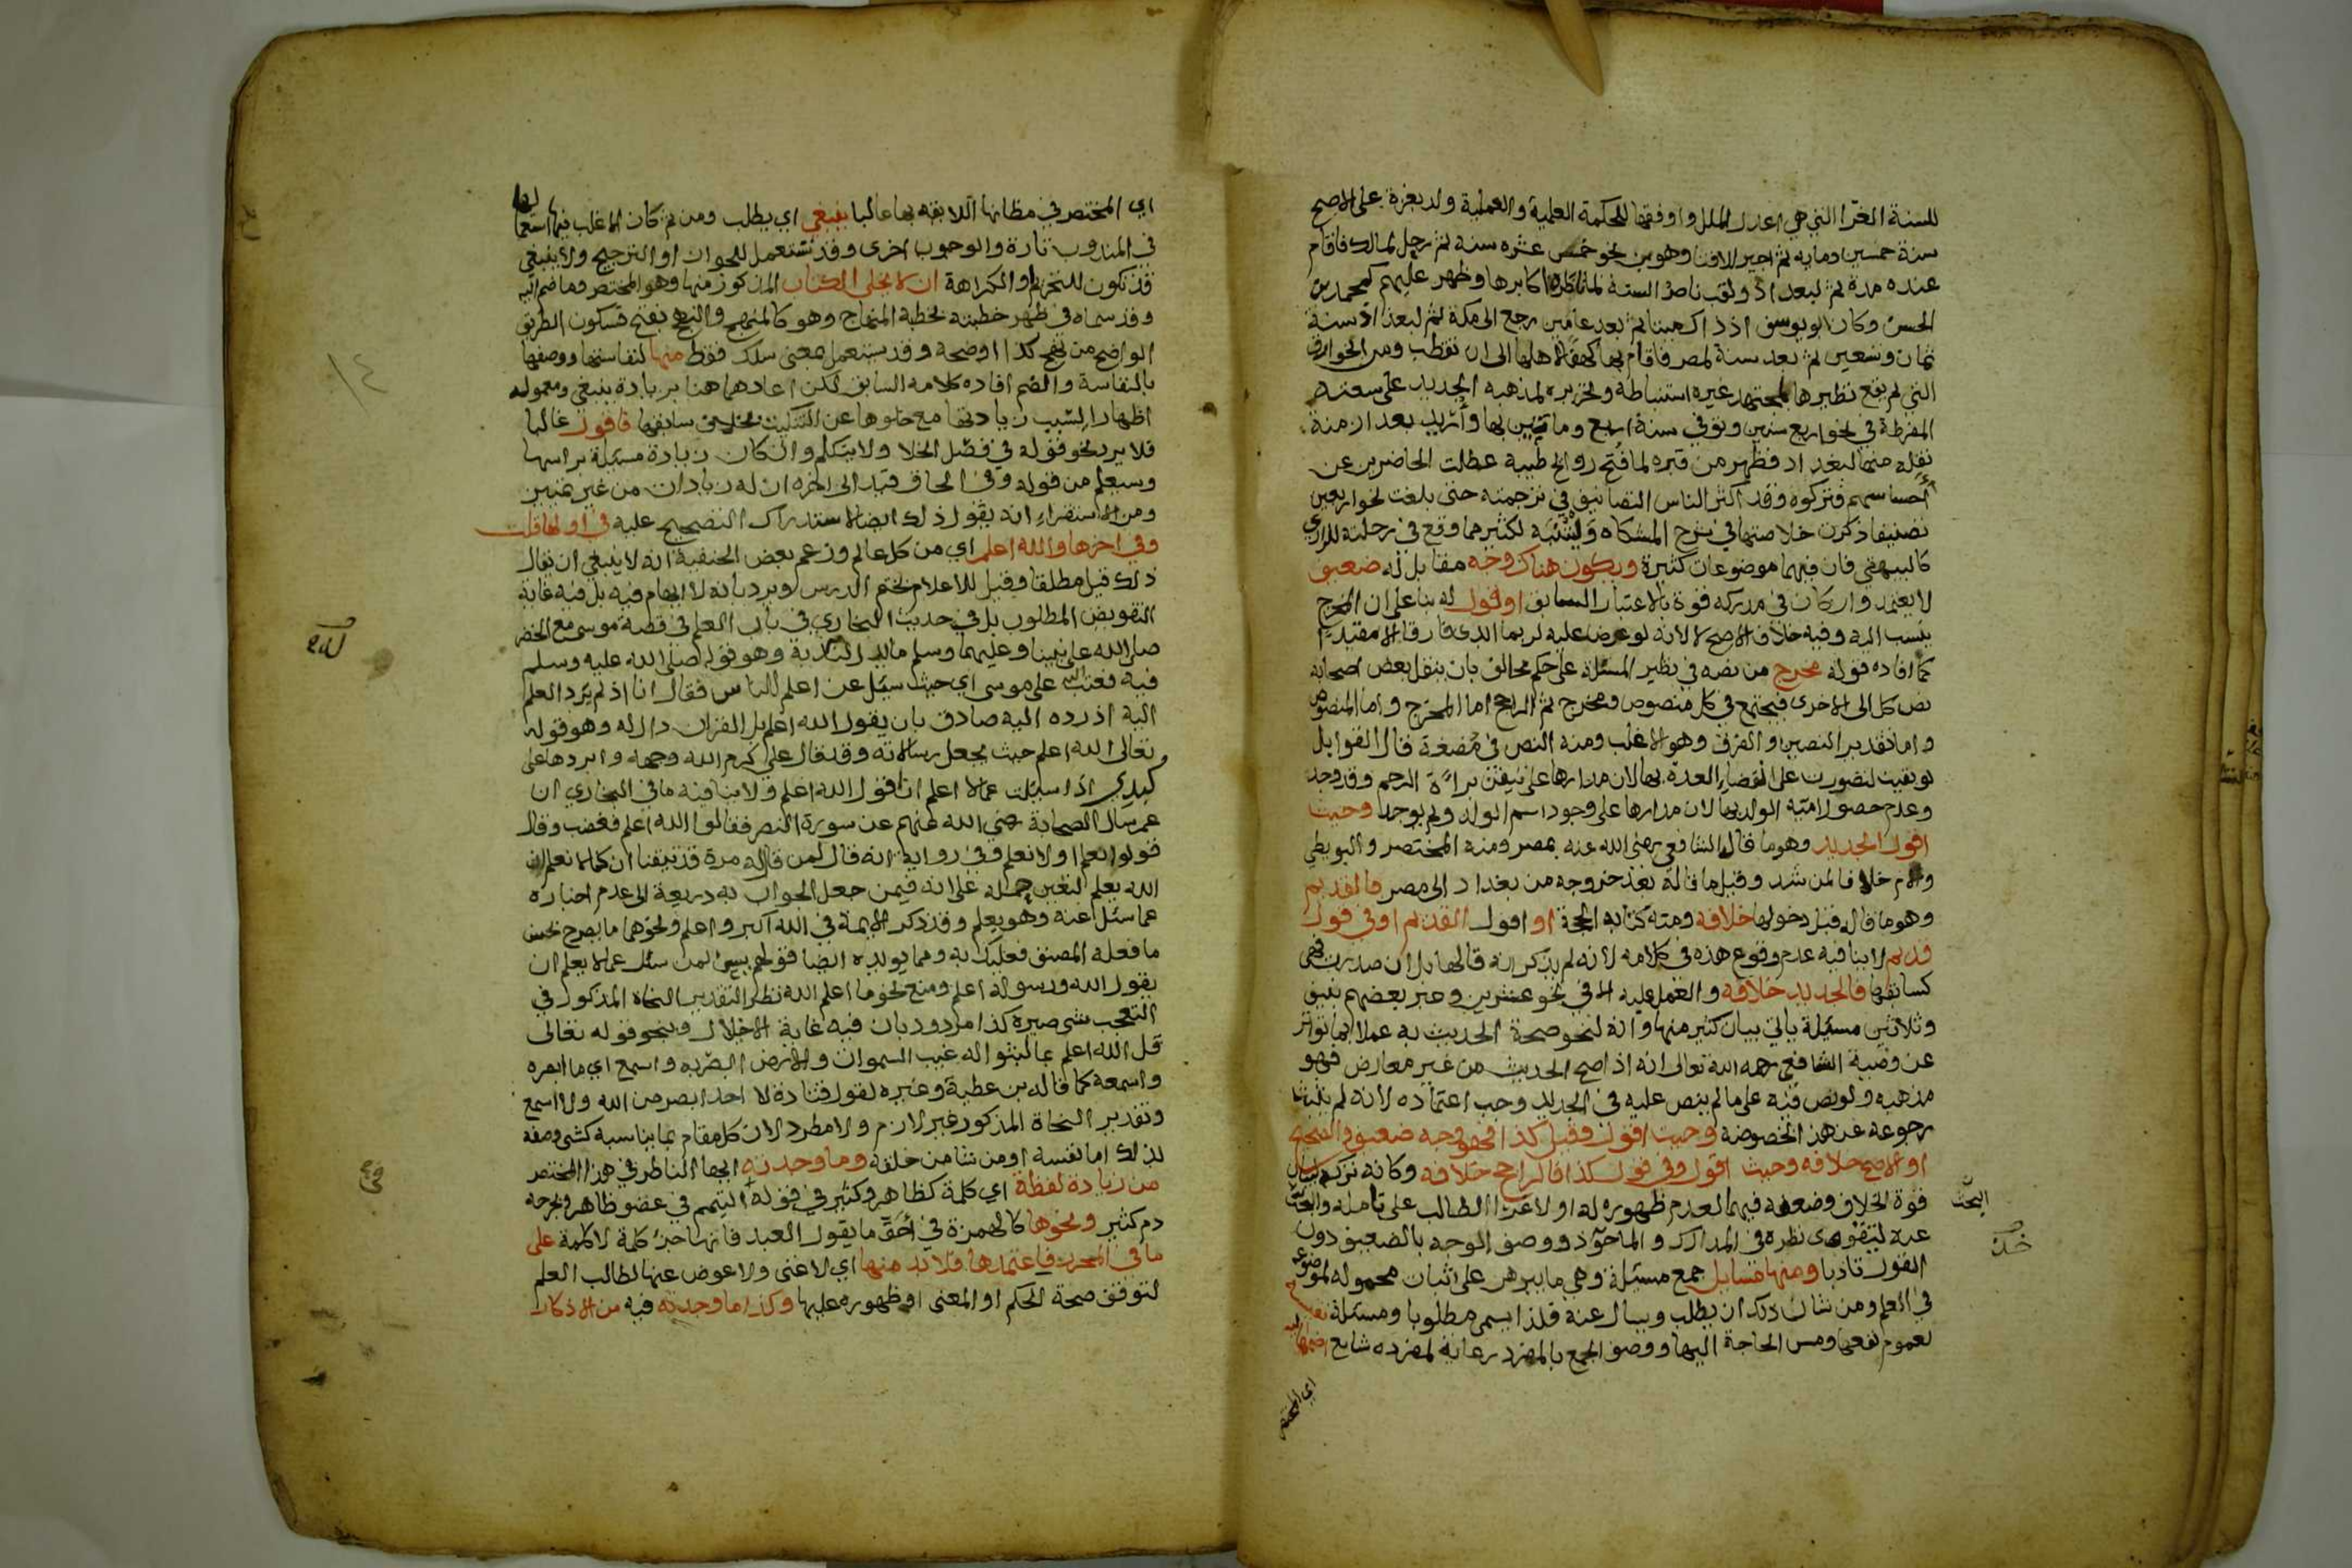 للسنة الغرّا التي هي اعدل الملل واوفقها للحكمة العلمية والعملية ولد بغزة على الاصح
سنة خمسين ومايه ثم اجيز للافتا وهو بن نحو خمس عشره سنه ثم رحل لمالك فاقام
عنده مدة ثم لبغداد ولقب ناصر السنة لما ناظر اكابرها وظهر عليهم كمحمد بن
الحسن وكان ابو يوسف اذ ذاك ميتا ثم بعد عامين رجع الى مكة ثم لبغداد سنة
ثمان وتسعين ثم بعد سنة لمصر فاقام بها كهفا لاهلها الى ان تقطب ومن الخوارق
التي لم يقع نظيرها لمجتهد غيره استنباطه وتحريره لمذهبه الجديد على سعته
المفرطة في نحو اربع سنين وتوفي سنة اربع ومائتين بها وأريد بعد ازمنة
نقله منها لبغداد فظهر من قبره لما فتح روايح طيبة عطلت الحاضرين عن
احساسهم فتركوه وقد اكثر الناس التصانيف في ترجمته حتى بلغت نحو اربعين
تصنيفا ذكرت خلاصتها في شرح المشكاه وليتنبه لكثير مما وقع في رحلته للرازي
كالبيهقي فان فيهما موضوعات كثيرة ويكون هناك وجه مقابل له ضعيف
لا يعتمد وان كان في مدركه قوة بالاعتبار السابق او قول له بنا على ان المخرج
ينسب اليه وفيه خلاف الاصح لا لانه لو عرض عليه لربما ابدى فارقا الا مقيدا
كما افاده قوله مخرج من نصه في نظير المسئلة على حكم مخالف بان ينقل بعض اصحابه
نص كل الى الاخرى فيجتمع في كل منصوص ومخرج ثم الراجح اما المخرج واما المنصوص
واما تقدير النصين والفرق وهو الاغلب ومنه النص في مضغة قال القوابل
لو بقيت لتصورت على انقضاء العدة بها لان مدارها على تيقن براءة الرحم وقد وجد
وعدم حصول اميّة الولد بها لان مدارها على وجود اسم الولد ولم يوجد وحيث
اقول الجديد وهو ما قاله الشافعي رضي الله عنه بمصر ومنه المختصر والبويطي
والام خلافا لمن شذ وقيل ما قاله بعد خروجه من بغداد الى مصر فالقديم
وهو ما قاله قبل دخولها خلافه ومنه كتابه الحجة او اقول القديم او في قول
قديم لا ينافيه عدم وقوع هذه في كلامه لانه لم يذكر انه قالها بل ان صدرت فهي
كسابقها فالجديد خلافه والعمل عليه الا في نحو عشرين وعبر بعضهم بنيف
وثلاثين مسئلة ياتي بيان كثير منها وانه لنحو صحة الحديث به عملا بما تواتر
عن وصية الشافعي رحمه الله تعالى انه اذا صح الحديث من غير معارض فهو
مذهبه ولو نص فيه على ما لم ينص عليه في الجديد وجب اعتماده لانه لم يثبت
رجوعه عن هذا بخصوصه وحيث اقول وقيل كذا فهو وجه ضعيف والصحيح
او الاصح خلافه وحيث اقول وفي قول كذا فالراجح خلافه وكانه تركه بيان
قوة الخلاف وضعفه فيهما لعدم ظهوره له او لاغراء الطالب على تامله والبحث
البحث
عنه ليتقوى نظره في المدارك والماخوذ ووصف الوجه بالضعيف دون
القول تادبا ومنها مسايل جمع مسئلة وهي ما يبرهن على اثبات محموله لموضوعه
في العلم ومن شان ذلك ان يطلب ويسال عنه فلذا يسمى مطلوبا ومسئلة نفيسة
لعموم نفعها ومس الحاجة اليها ووصف الجمع بالمفرد رعاية لمفرده شايع اضمها اليه
اي المختصر
اي المختصر في مظانها اللايقه بها غالبا ينبغي اي يطلب ومن ثم كان الاغلب فيها استعمالها
في المندوب تارة والوجوب اخرى وقد تستعمل للجواز او الترجيح ولا ينبغي
قد تكون للتحريم او الكراهة ان لا يخلى الكتاب المذكور منها وهو المختصر وما ضم اليه
وقد سماه في ظهر خطبته لخطبة المنهاج وهو كالمنهج والنهج بفتح فسكون الطريق
الواضح من نهج كذا اوضحه وقد يستعمل بمعنى سلك فقط منها لنفاستها ووصفها
بالنفاسة والضم افاده كلامه السابق لكن اعادهما هنا بزيادة ينبغي ومعموله
اظهارا لسبب زيادتها مع خلوها عن التنكيت بخلاف سابقها فاقول غالبا
فلا يرد نحو قوله في فصل الخلا ولا يتكلم وان كان زيادة مسئلة براسها
وسيعلم من قوله وفي الحاق قيد الى اخره ان له زيادات من غير تمييز
ومن الاستقراء انه يقول ذلك ايضا لاستدراك التصحيح عليه في اولها قلت
وفي اخرها والله اعلم اي من كل عالم وزعم بعض الحنفية انه لا ينبغي ان يقال
ذلك قيل مطلقا وقيل للاعلام بختم الدرس ويرد بانه لا ايهام فيه بل فيه غاية
التفويض المطلوب بل في حديث البخاري في باب العلم في قصة موسى مع الخضر
صلى الله على نبينا وعليهما وسلم ما يدل لندبه وهو قوله صلى الله عليه وسلم
فيه فعتب الله على موسى اي حيث سئل عن اعلم الناس فقال انا اذ لم يرد العلم
اليه اذ رده اليه صادق بان يقول الله اعلم بل القران دال له وهو قوله
تعالى الله اعلم حيث يجعل رسالاته وقد قال علي كرم الله وجهه وابردها على
كبدي اذا سئلت عما لا اعلم ان اقول الله اعلم ولا ينافيه ما في البخاري ان
عمر سال الصحابة رضي الله عنهم عن سورة النصر فقالوا الله اعلم فغضب وقال
قولوا نعلم او لا نعلم وفي رواية انه قال لمن قاله مرة قد تيقنا ان كنا لا نعلم ان
الله يعلم لتعين حمله على انه فيمن جعل الجواب به ذريعة الى عدم اخباره
عما سئل عنه وهو يعلم وقد ذكر الايمة في الله اكبر واعلم ونحوهما ما يصرح بحسن
ما فعله المصنف فعليك به ومما يؤيده ايضا قولهم يسن لمن سئل عما لا يعلم ان
يقول الله ورسوله اعلم ومنع نحو ما اعلم الله نظرا لتقدير النحاة المذكور في
التعجب شي صيره كذا مردود بان فيه غاية الاجلال وبنحو قوله تعالى
قل الله اعلم بما لبثوا له غيب السموات والارض ابصر به واسمع اي ما ابصره
واسمعه كما قاله بن عطية وغيره لقول قتادة لا احد ابصر من الله ولا اسمع
وتقدير النحاة المذكور غير لازم ولا مطرد لان كل مقام بما يناسبه كشي وصفه
بذلك اما نفسه او من شا من خلقه وما وجدته ايها الناظر في هذا المختصر
من زيادة لفظة اي كلمة كظاهر وكثير في قوله التيمم في عضو ظاهر وبجرحه
دم كثير ونحوها كالهمزة في أحق ما يقول العبد فانها جزء كلمة لا كلمة على
ما في المحرر فاعتمدها فلا بد منها اي لا غنى ولا عوض عنها لطالب العلم
لتوقف صحة الحكم او المعنى او ظهوره عليها وكذا ما وجدته فيه من الاذكار
١٤